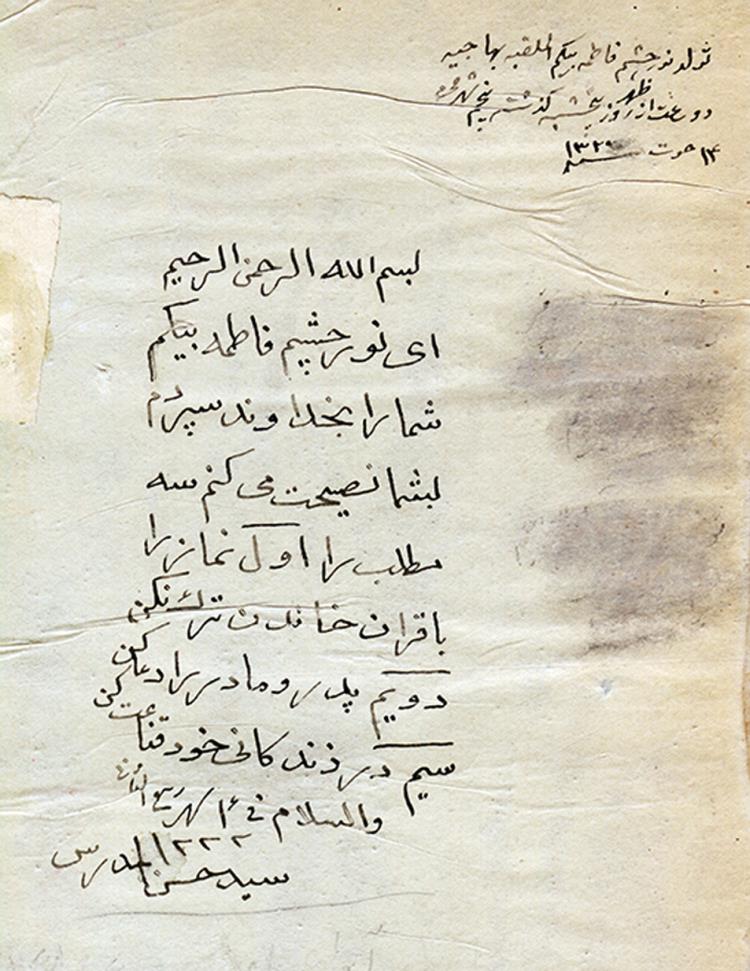 تولد نورچشم فاطمه بیکم الملقبه بها جیه
دو ساعت از ظهر روز پنجشنبه کذشته پنجم شهر
۱۴ حوت سنه
بسم الله الرحمن الرحیم
ای نورچشم فاطمه بیکم
شما را بخداوند سپردم
بشما نصیحت می کنم سه
مطلب را اول نماز را
با قران خاندن ترك نکن
دویم پدر و مادر را دعا کن
سیم در زندکانی خود قناعت کن
والسلام فی شهر ربیع الثانی
۱۳۳۳
سید حسن المدرس